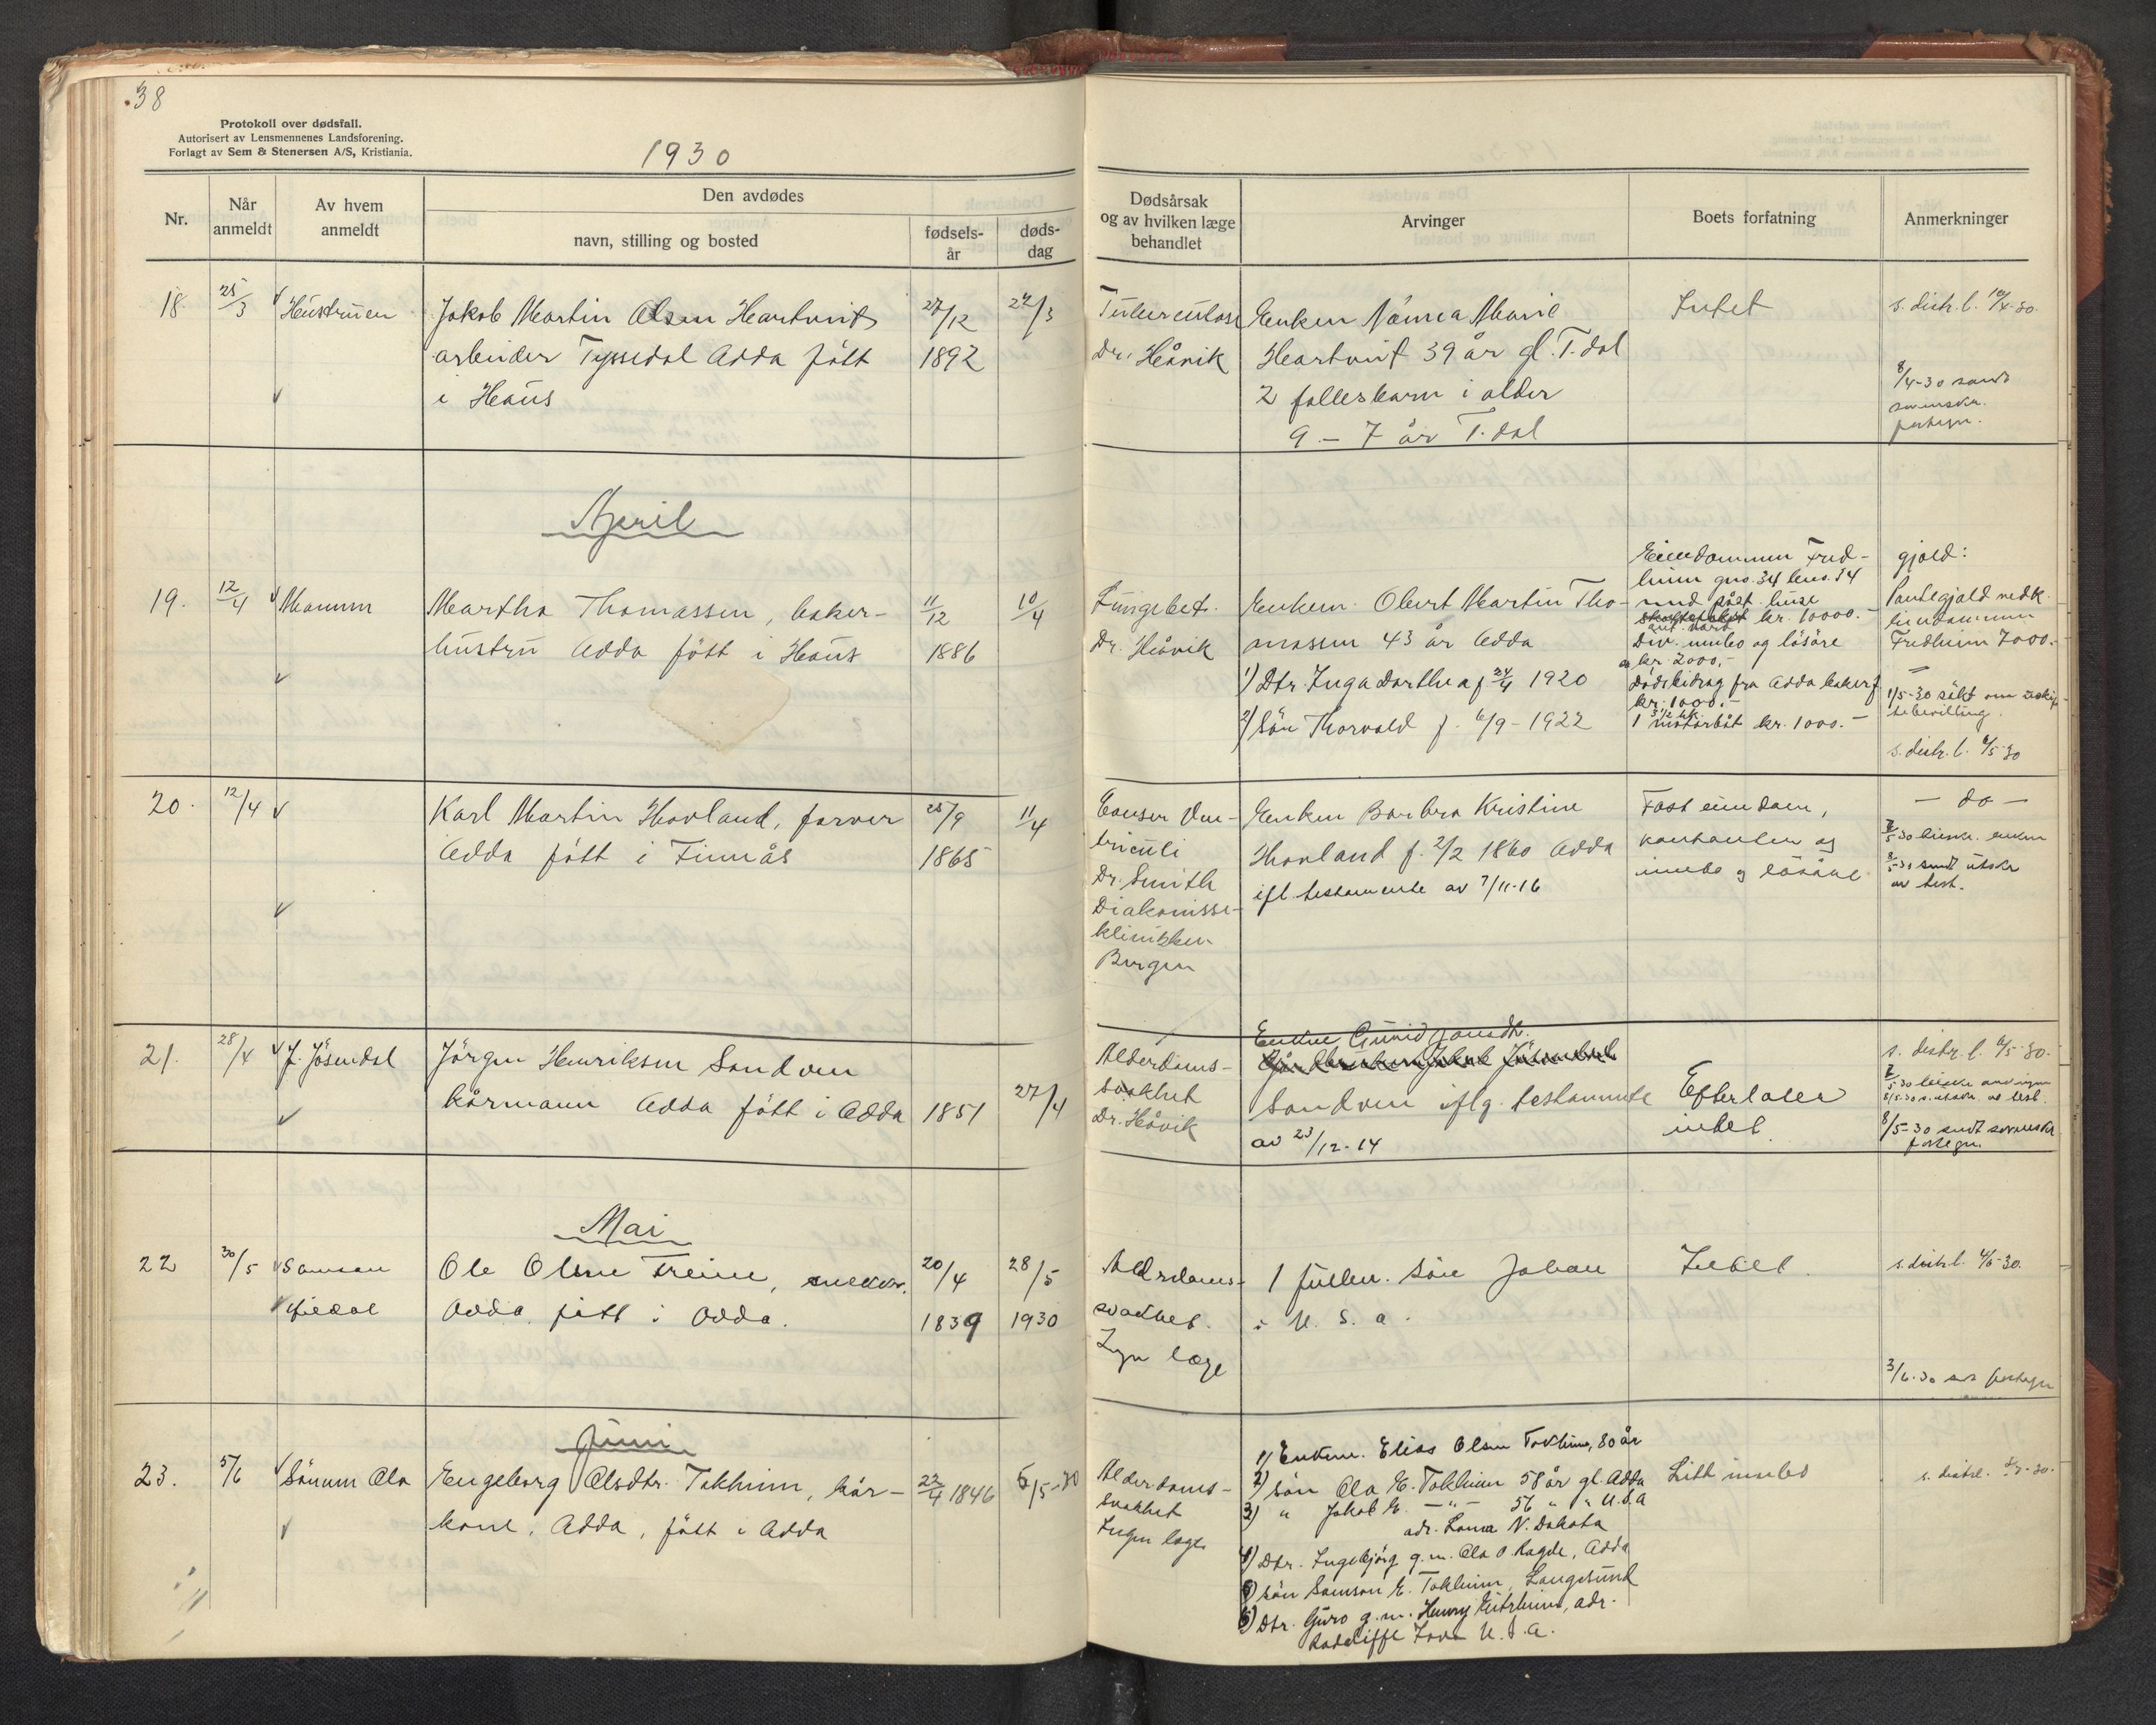 38
Protokoll over dødsfall.
Autorisert av Lensmennenes Landsforening.
Forlagt av Sem & Stenersen A/S, Kristiania.
1930
Nr.
Når anmeldt
Av hvem anmeldt
Den avdødes
navn, stilling og bosted
fødsels-år
døds-dag
Dødsårsak og av hvilken læge behandlet
Arvinger
Boets forfatning
Anmerkninger
18.
25/3
Hustruen
Jakob Martin Olsen Hartvit
arbeider Tyssedal Odda født
i Haus
27/12
1892
22/3
Tuberculose
Dr. Håvik
Enken Nanna Marie
Hartvit 39 år gl. T.dal
2 fellesbarn i alder
9 – 7 år T.dal
Intet
s. distr. l. 10/4-30.
8/4-30 sendt
fortegn.
April
19.
12/4
Mannen
Martha Thomassen, baker-
hustru Odda født i Haus
11/12
1886
10/4
Lungebet.
Dr. Håvik
Enkem. Olert Martin Tho-
massen 43 år Odda
1) Dtr. Inga Dorthea f 24/4 1920
2) Sön Thorvald f. 6/9 - 1922
Eiendommen Fred-
heim gno. 34 bno. 34
med påst. huse
kr. 10000.-
Div. innbo og lösöre
kr. 2000.-
Dödsbidrag fra Odda bakerf
kr. 1000.-
1 motorbåt kr. 1000.-
3 1/2 hk.
gjæld:
Pantegjæld nedk.
eiendommen
Fredheim 7000.-
1/5-30 sökt om uskif-
tebevilling.
s. distr. l. 6/5-30
20.
12/4
Karl Martin Hovland, farver
Odda født i Finnås
25/9
1865
11/4
Cancer Ven-
triculi
Dr. Smith
Diakonisse-
klinikken
Bergen
Enken Barbra Kristine
Hovland f. 2/2 1860 Odda
ifl. testamente av 7/11-16
Fast eiendom,
kontanter og
innbo og lösöre
— do —
5-30 sendt utskr
av test.
21.
28/4
J. Jösendal
Jörgen Henriksen Sandven
kårmann Odda født i Odda
1851
27/4
Alderdoms-
svakhet
Dr. Håvik
Enken Gunvid Jonsdtr.
Sandven iflg. testamente
av 23/12-14
Efterlater
intet.
s. distr. l. 6/5-30.
8/5-30 sendt
fortegn.
Mai
22
30/5
Samson
Ole Olsen Freim, snekker.
Odda født i Odda.
20/4
1839
28/5
1930
Alderdoms-
svakhet.
Ingen læge
1 fullm. sön Johan
i U. S. a.
Intet.
s. distr. l. 4/6-30.
3/6-30 fortegn
Juni
23.
5/6
Sönnen Ola
Engeborg Olsdtr. Tokheim, kår-
kone, Odda, født i Odda
22/4 1846
6/5-30
Alderdoms-
svakhet
Ingen læge
1) Enkem. Elias Olsen Tokheim, 80 år
2) sön Ola E. Tokheim 58 år gl. Odda
3) " Jakob E. — " — 56 " " U.S.A
adr. Loma N. Dakota
4) Dtr. Ingebjörg g.m. Ola O. Ragde, Odda
5) sön Samson E. Tokheim, Langesund
6) Dtr. Guro g.m. Henry Eitrheim, adr.
Radcliffe Iowa U.S.A.
Litt innbo
s. distr. l.